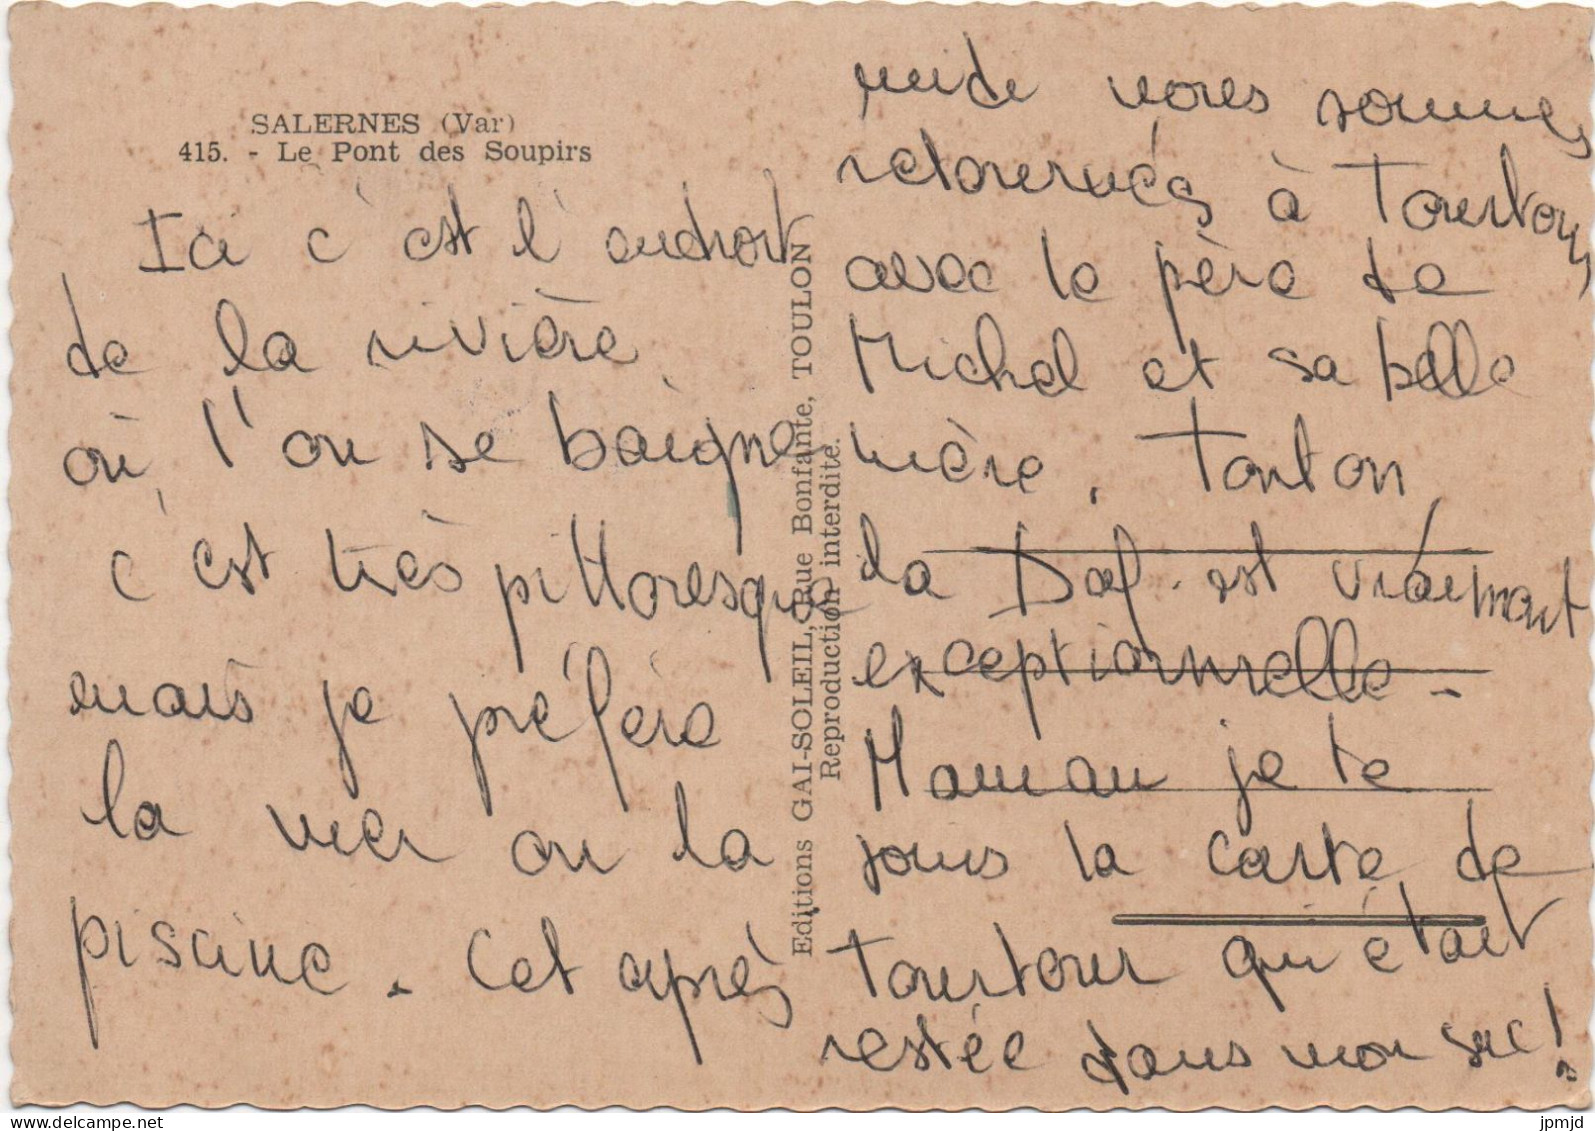 SALERNES (Var)
415. - Le Pont des Soupirs
Ici c'est l'endroit
de la rivière
où l'on se baigne
c'est très pittoresque
mais je préfère
la mer ou la
piscine. Cet après
Editions GAI-SOLEIL, Rue Bonfante, TOULON
Reproduction interdite.
midi nous sommes
retournés à Tourtour
avec le père de
Michel et sa belle
mère. Tonton,
la Daf est vraiment
exceptionnelle -
Maman je te
joins la carte de
Tourtour qui était
restée dans mon sac!
https://www.delcampe.net
jpmjd